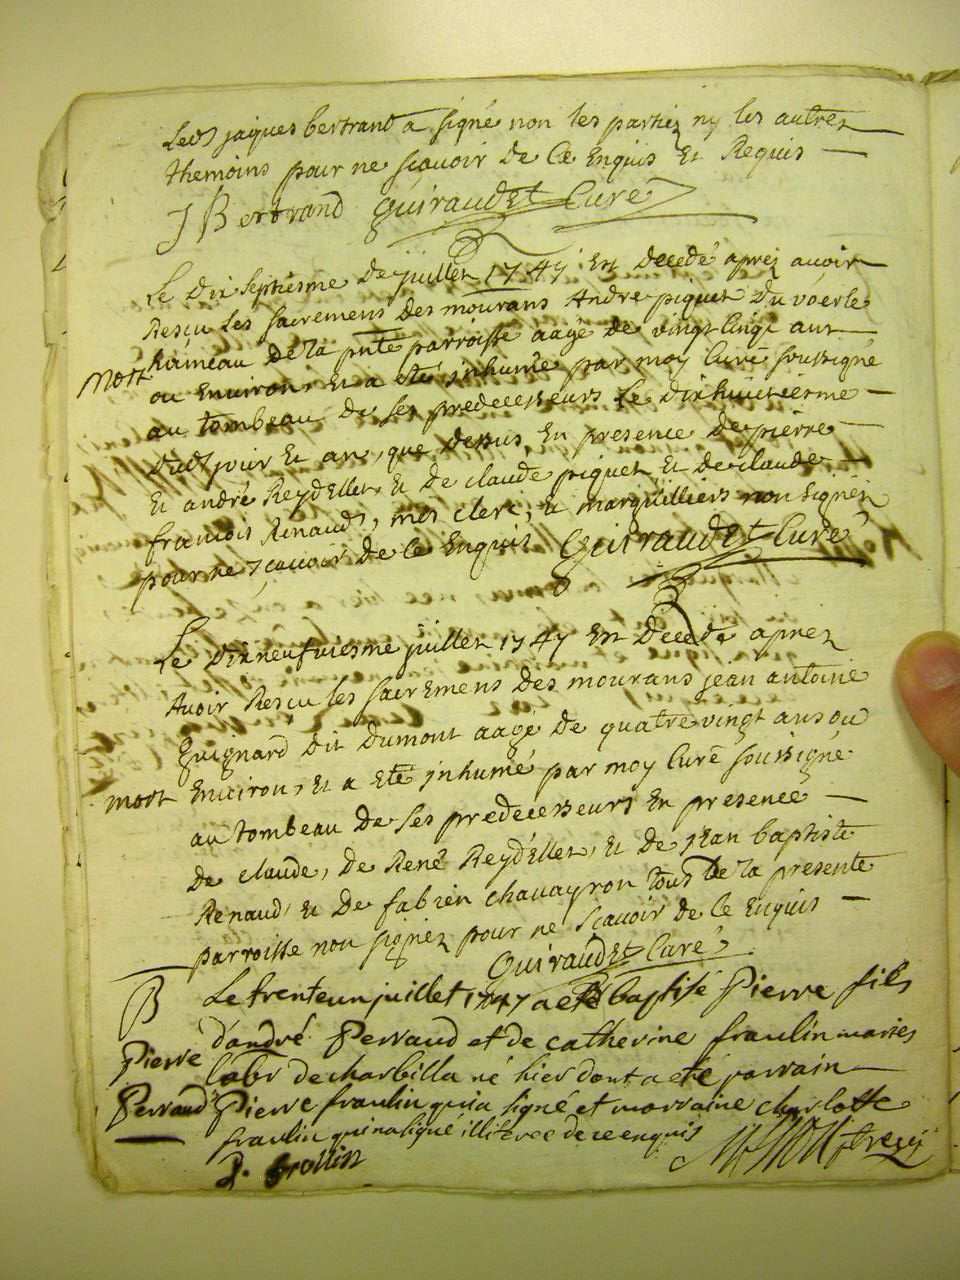 Led. jaques bertrand a signé non les partiez ny les autrez
themoins pour ne sçavoir de Ce Enquis Et Requis
J Bertrand Guiraudet Curé
Le Dix septiesme de juillet 1747 Est Decedé aprez avoir
Resçu Les sacremens Des mourans Andre piquet Du voerle
haimeau De la pnte parroisse aagé de vingt Cinq ans
mort
ou Environ, Et a eté jnhumé par moy Curé soussigné
au tombeau de Ses predecesseurs Le Dixhuictiesme
Dud. jour Et an, que dessus, En presence De pierre
Et andré Reydellet, Et De claude piquet Et De claude
francois Renaud, mes clerc, et marguilliers non signéz
pour ne sçavoir de Ce Enquis Guiraudet Curé
Le Dixneufviesme juillet 1747 Est Decedé aprez
Avoir Resçu les sacremens Des mourans jean antoine
Guignard Dit Dumont aagé De quatre vingt ans ou
mort
Environ, Et a Eté jnhumé par moy Curé soussigné
au Tombeau De Ses predecesseurs En presence
De claude, De René Reydellet, Et De jean baptiste
Renaud, Et De fabien chavayron tous De la presente
parroisse non signez pour ne Scavoir de Ce Enquis
Guiraudet Curé
B
Pierre
Perraud
Le trente un juillet 1747 a eté baptisé Pierre fils
d'andré Perraud et de catherine fraulin maries
labr de charbilla né hier dont a eté parrain
Pierre fraulin qui a signé et marraine charlotte
fraulin qui na signé illiteree de ce enquis
p. frollin